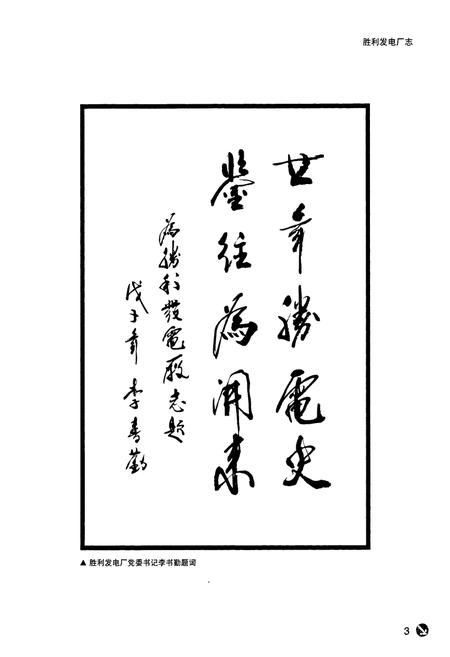 胜利发电厂志
廿年勝電史
鑒往為開来
為勝利發電廠志題
戊子年 李書勤
▲ 胜利发电厂党委书记李书勤题词
3